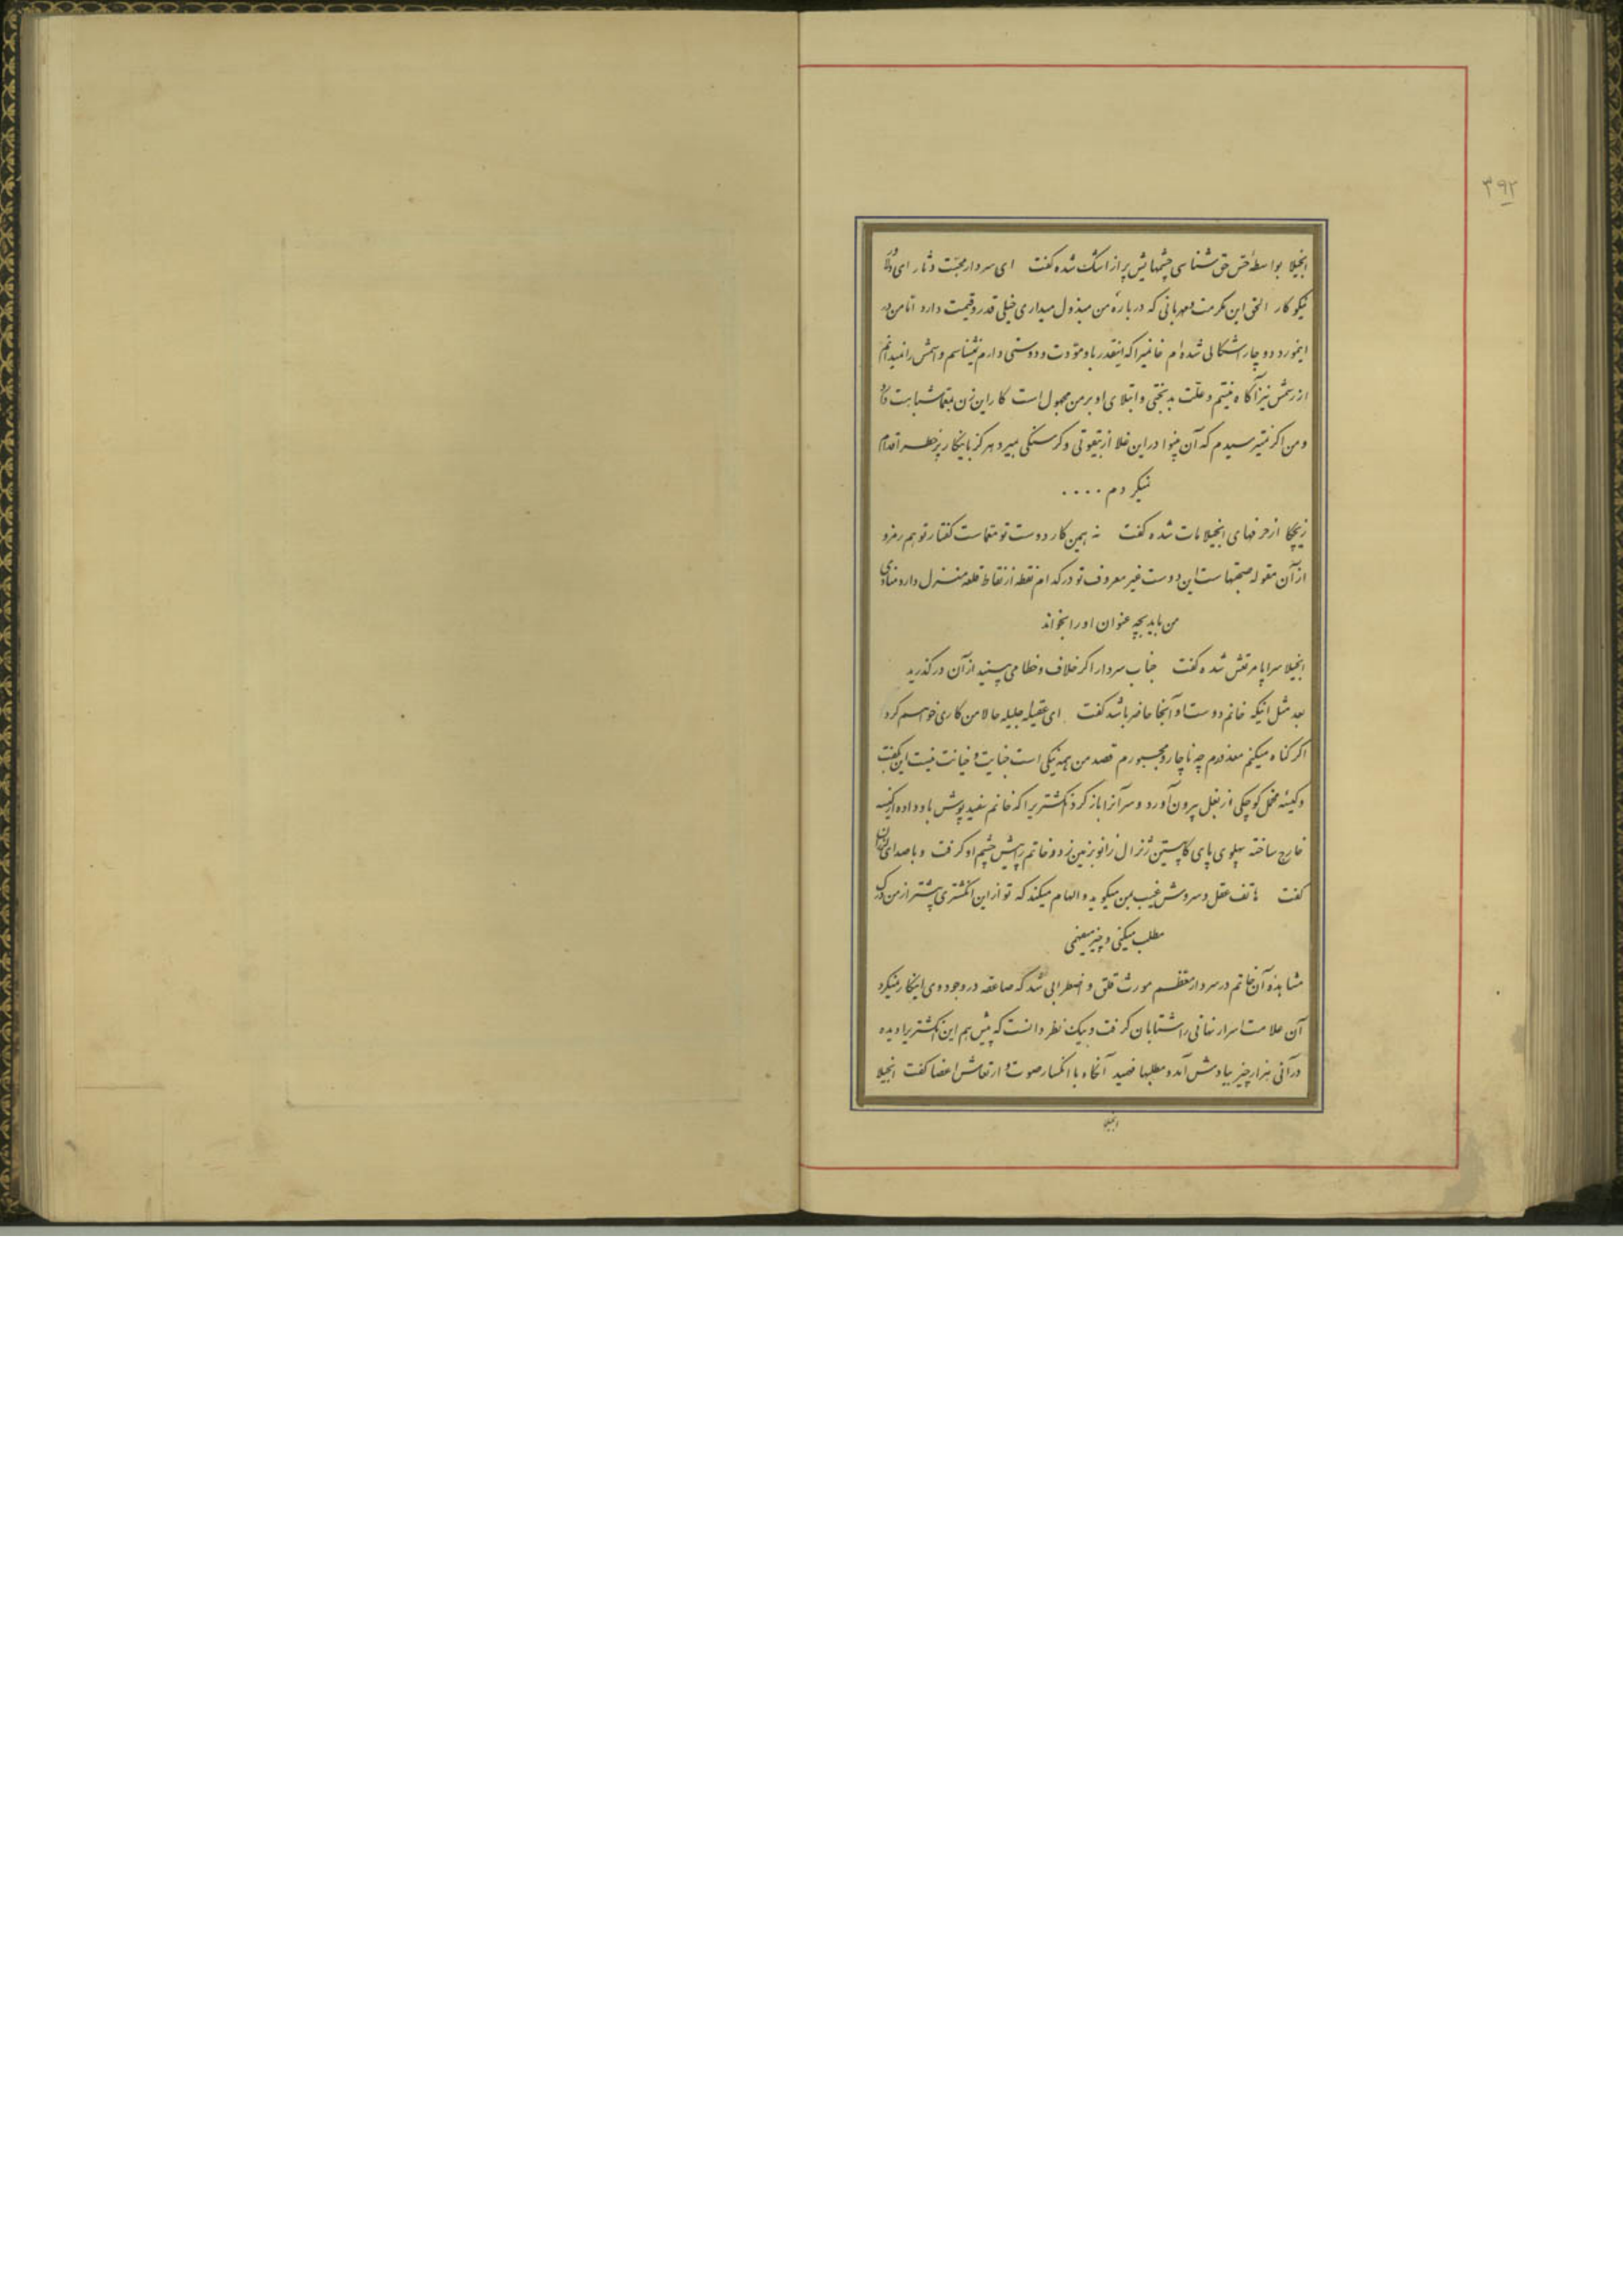 ۳۹۲
انجیلا بواسطهٔ حس حق شناسی چشمهایش پر از اشک شده گفت ای سردار محبت دثار ای
نیکوکار الحق این مکرمت و مهربانی که دربارهٔ من مبذول میداری خیلی قدر و قیمت دارد اما من در
اینمورد دوچار اشکالی شده‌ام خانمیرا که اینقدر باو مودت و دوستی دارم نمیشناسم و اسمش را نمیدانم
از رسمش نیز آگاه نیستم و علت بدبختی و ابتلای او بر من مجهول است کار این زن بمعما شباهت دارد
و من اگر نمیترسیدم که آن بینوا در این غلا از بیقوتی و گرسنگی بمیرد هرگز باینکار پرخطر اقدام
نمیکردم ....
زیچکا از حرفهای انجیلا مات شده گفت نه همین کار دوست تو معماست گفتار تو هم رمز و
از آن مقوله صحبتهاست این دوست غیر معروف تو در کدام نقطه از نقاط قلعه منزل دارد منادی
من باید بچه عنوان او را بخواند
انجیلا سراپا مرتعش شده گفت جناب سردار اگر خلاف و خطا می‌بینید از آن درگذرید
بعد مثل اینکه خانم دوست او آنجا حاضر باشد گفت ای عقیله جلیله حالا من کاری خواهم کرد
اگر گناه میکنم معذورم چه ناچار و مجبورم قصد من همه نیکی است جنایت و خیانت نیست این بگفت
و کیسه مخمل کوچکی از بغل بیرون آورد و سر آنرا باز کرد انگشتریرا که خانم سفیدپوش باو داده از کیسه
خارج ساخته پهلوی پای کاپیتین ژنرال زانو بزمین زد و خاتم را پیش چشم او گرفت و با صدای لرزان
گفت هاتف عقل و سروش غیب بمن میگوید و الهام میکند که تو از این انگشتری بیشتر از من درک
مطلب میکنی و چیز میفهمی
مشاهدهٔ آن خاتم در سردار معظم مورث قلق و اضطرابی شد که صاعقه در وجود وی اینکار نمیکرد
آن علامت اسرار نهانی را شتابان گرفت و بیک نظر دانست که پیش هم این انگشتریرا دیده
در آنی هزار چیز بیادش آمد و مطلبها فهمید آنگاه با انکسار صوت و ارتعاش اعضا گفت انجیلا
انجیلا